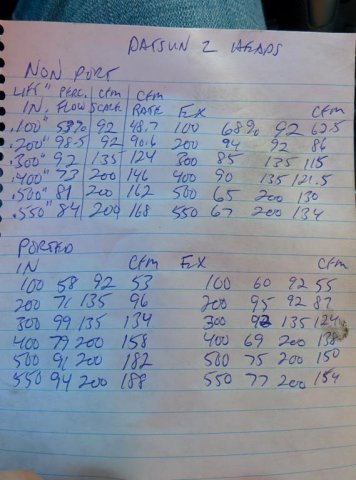 DATSUN Z HEADS
NON PORT
LIFT" PERC. CFM CFM
IN. FLOW SCALE RATE EX CFM
.100" 53% 92 48.7 100 68% 92 62.5
.200" 98.5 92 90.6 200 94 92 86
.300" 92 135 124 300 85 135 115
.400" 73 200 146 400 90 135 121.5
.500" 81 200 162 500 65 200 130
.550" 84 200 168 550 67 200 134
PORTED
IN CFM EX CFM
100 58 92 53 100 60 92 55
200 71 135 96 200 95 92 87
300 99 135 134 300 92 135 124
400 79 200 158 400 69 200 138
500 91 200 182 500 75 200 150
550 94 200 188 550 77 200 154